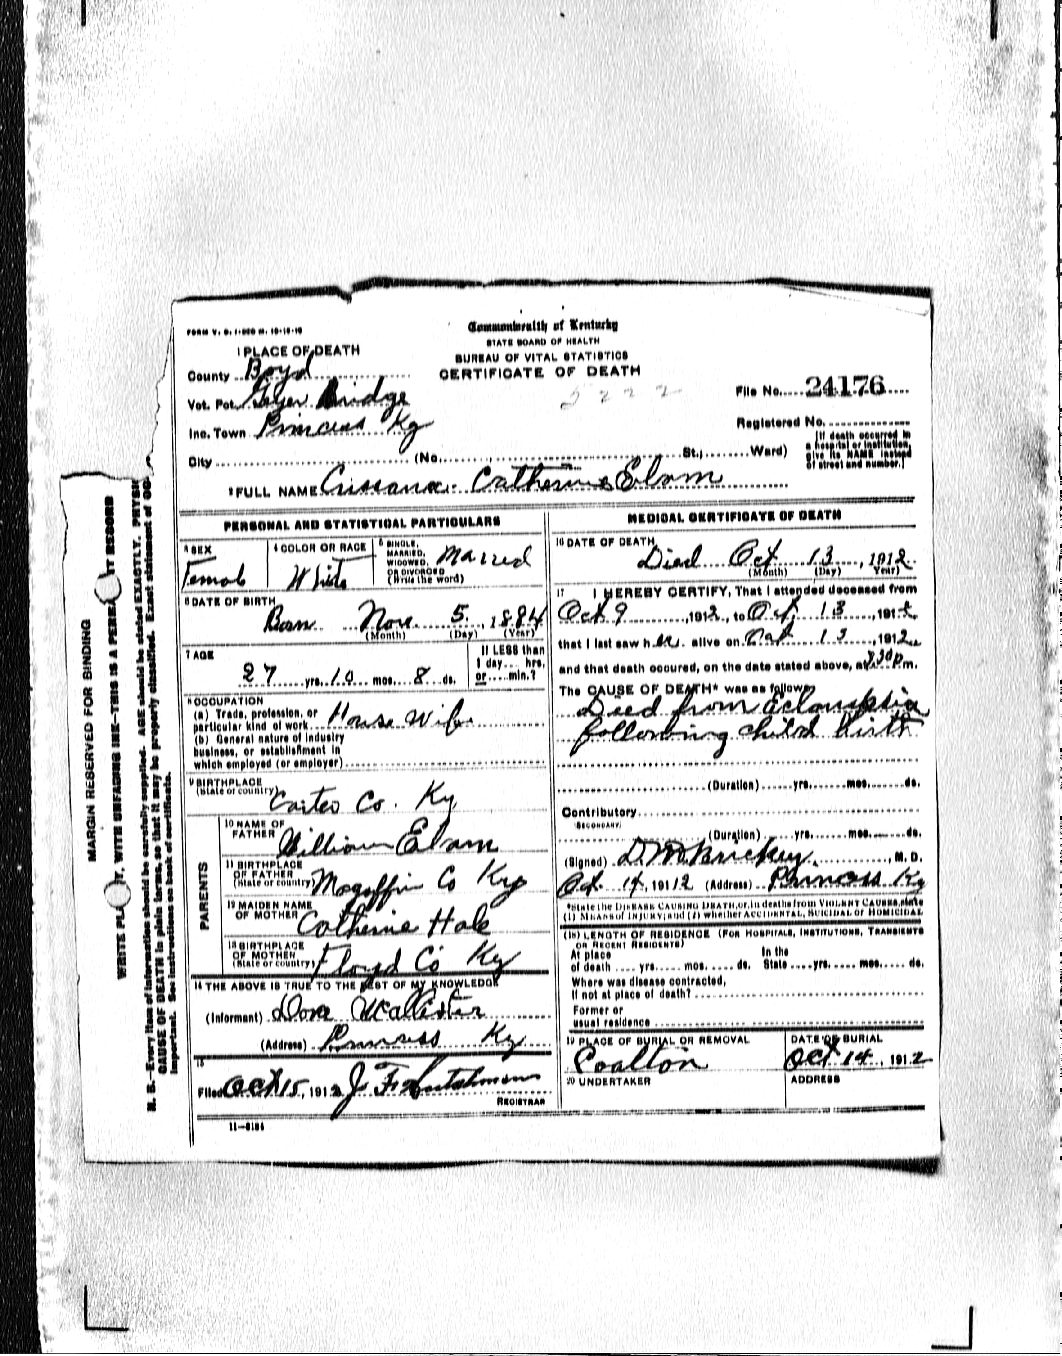 FORM V. S. 1-
Commonwealth of Kentucky
STATE BOARD OF HEALTH
BUREAU OF VITAL STATISTICS
CERTIFICATE OF DEATH
1 PLACE OF DEATH
County Boyd
Vot. Pct. Geyer Bridge
Inc. Town Princess Ky
City (No. St.; Ward)
File No. 24176
Registered No.
[If death occurred in
a hospital or institution,
give its NAME instead
of street and number.]
2 FULL NAME Crissana Catherine Elam
PERSONAL AND STATISTICAL PARTICULARS
3 SEX
Female
4 COLOR OR RACE
White
5 SINGLE,
MARRIED,
WIDOWED,
OR DIVORCED
(Write the word)
Married
6 DATE OF BIRTH
Born Nov 5, 1884
(Month) (Day) (Year)
7 AGE
27 yrs. 10 mos. 8 ds.
If LESS than
1 day hrs.
or min.?
8 OCCUPATION
(a) Trade, profession, or
particular kind of work House Wife
(b) General nature of industry
business, or establishment in
which employed (or employer)
9 BIRTHPLACE
(State or country) Carter Co. Ky
PARENTS
10 NAME OF
FATHER William Elam
11 BIRTHPLACE
OF FATHER
(State or country) Magoffin Co Ky
12 MAIDEN NAME
OF MOTHER Catherine Hale
13 BIRTHPLACE
OF MOTHER
(State or country) Floyd Co Ky
14 THE ABOVE IS TRUE TO THE BEST OF MY KNOWLEDGE
(Informant) Dora McAllister
(Address) Princess Ky
15
Filed Oct 15, 1912 J F Hutchinson
REGISTRAR
11-5184
MEDICAL CERTIFICATE OF DEATH
16 DATE OF DEATH
Died Oct 13, 1912
(Month) (Day) (Year)
17 I HEREBY CERTIFY, That I attended deceased from
Oct 9, 1912, to Oct 13, 1912,
that I last saw her alive on Oct 13, 1912,
and that death occured, on the date stated above, at 7 30 p m.
The CAUSE OF DEATH* was as follows:
Died from Eclampsia
following child birth
(Duration) yrs. mos. ds.
Contributory
(SECONDARY)
(Duration) yrs. mos. ds.
(Signed) D. M. Brickey, M. D.
Oct. 14, 1912 (Address) Princess Ky
*State the DISEASE CAUSING DEATH, or, in deaths from VIOLENT CAUSES, state
(1) MEANS of INJURY; and (2) whether ACCIDENTAL, SUICIDAL or HOMICIDAL
(18) LENGTH OF RESIDENCE (FOR HOSPITALS, INSTITUTIONS, TRANSIENTS
OR RECENT RESIDENTS)
At place In the
of death yrs. mos. ds. State yrs. mos. ds.
Where was disease contracted,
If not at place of death?
Former or
usual residence
19 PLACE OF BURIAL OR REMOVAL
Coalton
DATE OF BURIAL
Oct 14, 1912
20 UNDERTAKER
ADDRESS
MARGIN RESERVED FOR BINDING
WRITE PLAINLY, WITH UNFADING INK—THIS IS A PERMANENT RECORD
N. B.—Every item of information should be carefully supplied. AGE should be stated EXACTLY. PHYSI
CAUSE OF DEATH in plain terms, so that it may be properly classified. Exact statement of OC
important. See instructions on back of certificate.